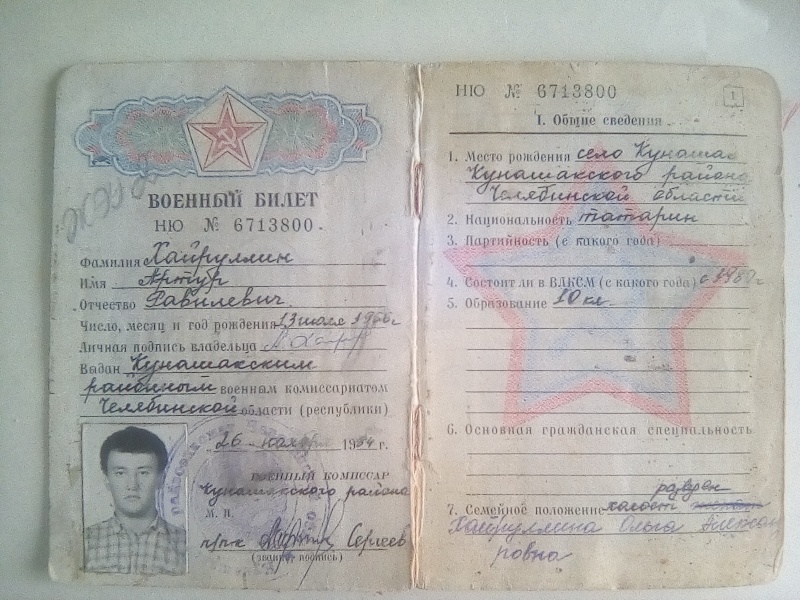 ВОЕННЫЙ БИЛЕТ
НЮ № 6713800
Фамилия Хайруллин
Имя Артур
Отчество Равилевич
Число, месяц и год рождения 13 июля 1966 г
Личная подпись владельца
Выдан Кунашакским
районным военным комиссариатом
Челябинской области (республики)
26 ноября 1984 г.
ВОЕННЫЙ КОМИССАР
Кунашакского района
М. П.
п/п-к Сергеев
(звание, подпись)
НЮ № 6713800
1
I. Общие сведения
1. Место рождения село Кунашак
Кунашакского района
Челябинской области
2. Национальность татарин
3. Партийность (с какого года)
4. Состоит ли в ВЛКСМ (с какого года) с 1980 г
5. Образование 10 кл.
6. Основная гражданская специальность
разведен
7. Семейное положение холост
Хайруллина Ольга
ровна